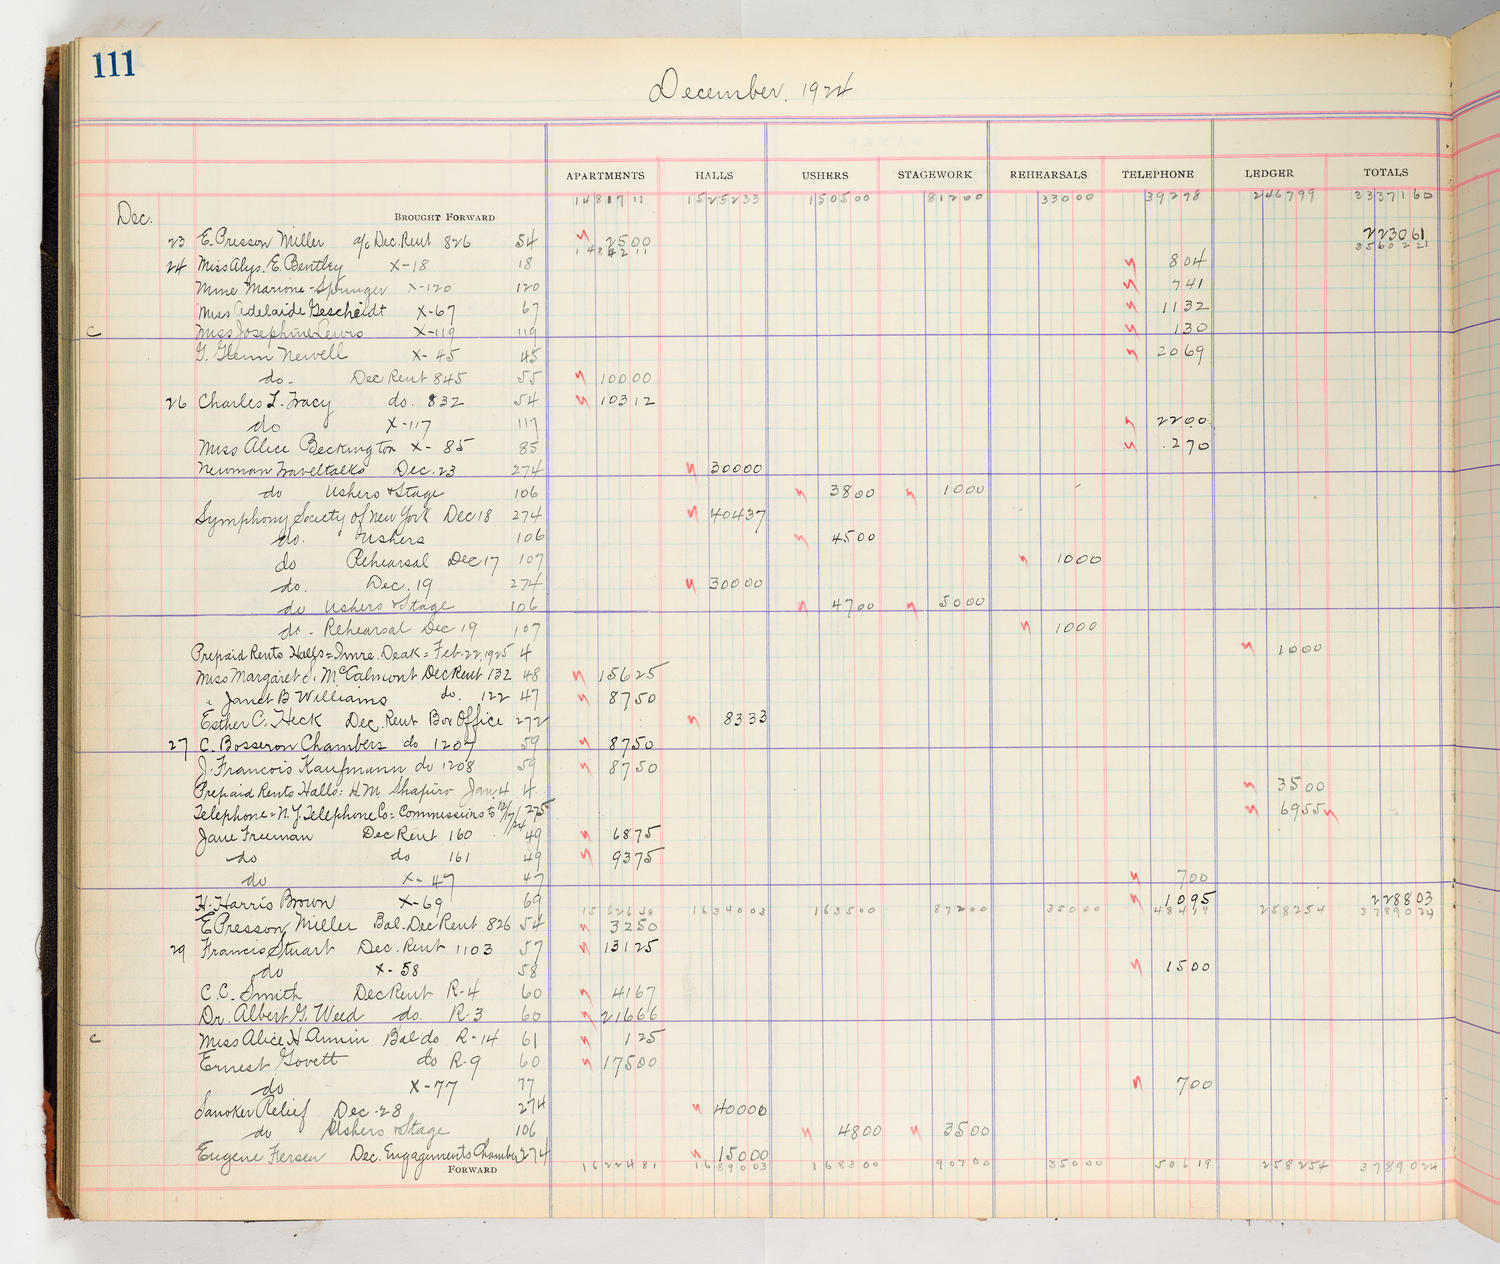 111
December. 1924
APARTMENTS HALLS USHERS STAGEWORK REHEARSALS TELEPHONE LEDGER TOTALS
Dec. BROUGHT FORWARD 1481711 1525233 150500 81200 33000 39278 246799 3337160
23 E. Presson Miller a/c Dec. Rent 826 54 2500 223061
1484211 3560221
24 Miss Alys. E. Bentley X-18 18 804
Mme Marione-Springer X-120 120 741
Miss Adelaide Gescheidt X-67 67 1132
c Miss Josephine Lewis X-119 119 130
G. Glenn Newell X-45 45 2069
do. Dec Rent 845 55 10000
26 Charles L. Tracy do. 832 54 10312
do X-117 117 2200
Miss Alice Beckington X-85 85 270
Newman Traveltalks Dec. 23 274 30000
do Ushers & Stage 106 3800 1000
Symphony Society of New York Dec 18 274 40437
do. Ushers 106 4500
do Rehearsal Dec 17 107 1000
do. Dec. 19 274 30000
do Ushers & Stage 106 4700 5000
do. Rehearsal Dec 19 107 1000
Prepaid Rents Halls = Imre. Deak = Feb. 22, 1925 4 1000
Miss Margaret J. McCalmont Dec Rent 132 48 15625
" Janet B Williams do. 122 47 8750
Esther C. Heck Dec. Rent Box Office 272 8333
27 C. Bosseron Chambers do 1207 59 8750
J. Francois Kaufmann do 1208 59 8750
Prepaid Rents Halls: H.M. Shapiro Jan. 4 4 3500
Telephone = N.Y. Telephone Co = Commissions to 12/17/24 275 6955
Jane Freeman Dec Rent 160 49 6875
do do 161 49 9375
do X-47 47 700
H. Harris Brown X-69 69 1095 228803
1562658 1634003 163500 87200 35000 48419 258254 3789024
E Presson Miller Bal. Dec Rent 826 54 3250
29 Francis Stuart Dec. Rent 1103 57 13125
do X-58 58 1500
C.C. Smith Dec Rent R-4 60 4167
Dr. Albert G. Weed do. R-3 60 21666
c Miss Alice H Annin Bal do R-14 61 125
Ernest Govett do R-9 60 17500
do X-77 77 700
Relief Dec-28 274 40000
do Ushers & Stage 106 4800 3500
Eugene Fersen Dec. Engagements Chamber 274 15000
FORWARD 1622481 1689003 168300 90700 35000 50619 258254 3789024